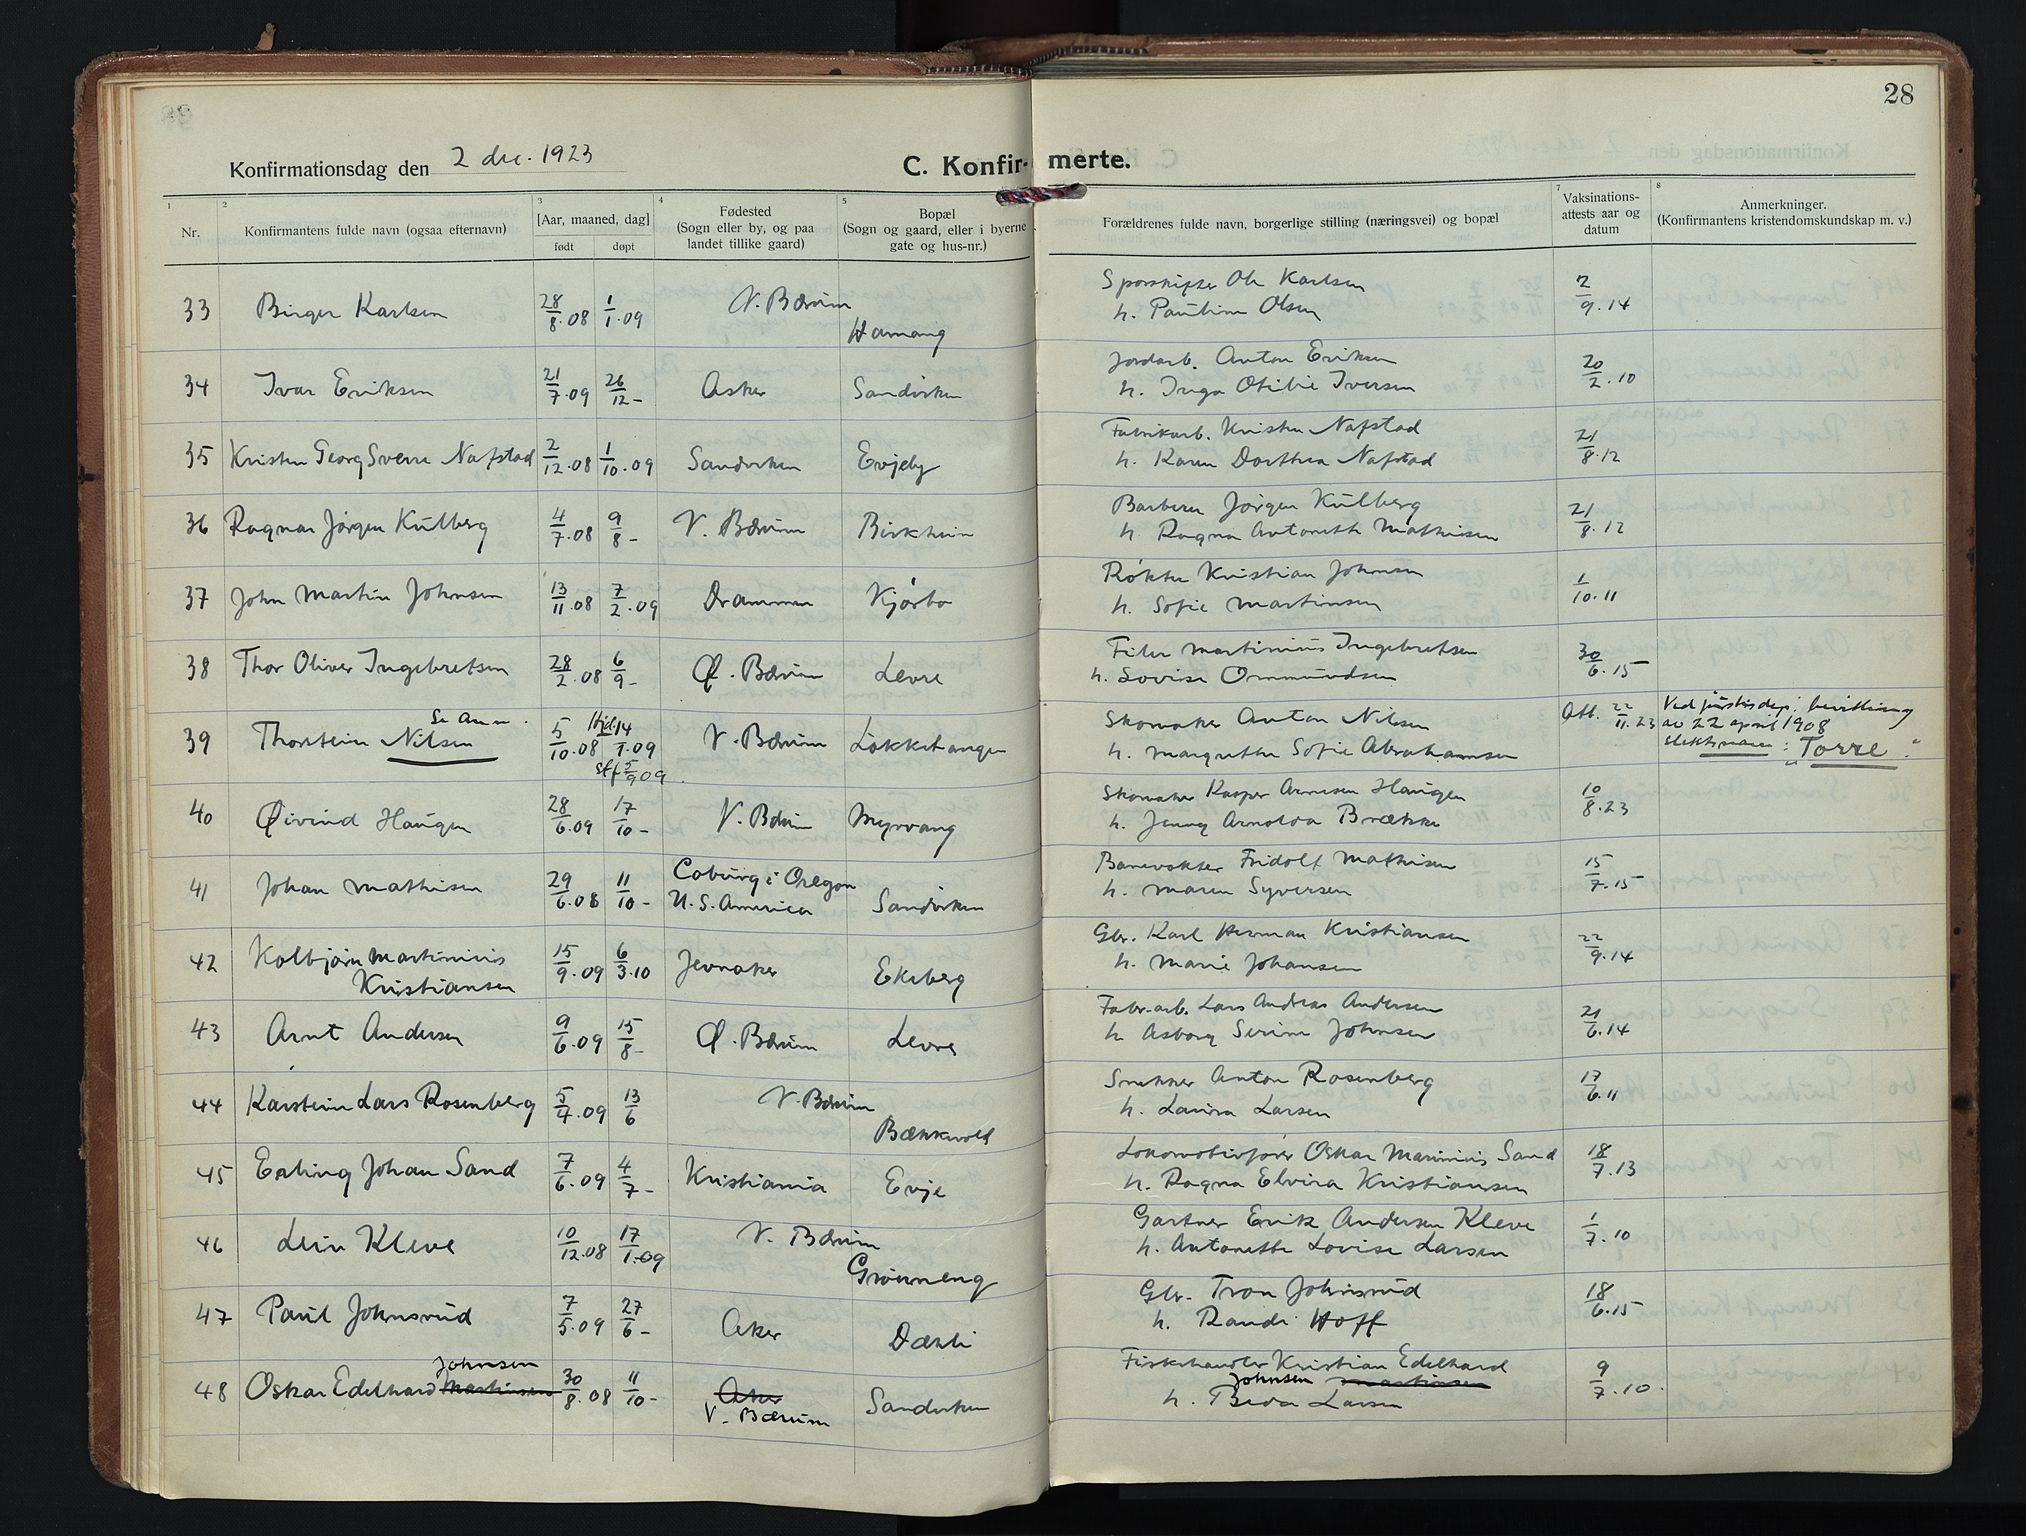 28
Konfirmationsdag den 2 dec. 1923
C. Konfirmerte.
1 2 3 4 5 7 8
Nr.
Konfirmantens fulde navn (ogsaa efternavn)
[Aar, maaned, dag]
født døpt
Fødested
(Sogn eller by, og paa
landet tillike gaard)
Bopæl
(Sogn og gaard, eller i byerne
gate og hus-nr.)
Forældrenes fulde navn, borgerlige stilling (næringsvei) og bopæl
Vaksinations-
attests aar og
datum
Anmerkninger.
(Konfirmantens kristendomskundskap m. v.)
33 Birger Karlsen 28/8.08 1/1.09 V. Bærum Hamang Sporskifter Ole Karlsen 2/9.14
h. Pauline Olsen
34 Ivar Eriksen 21/7.09 26/12- Asker Sandviken Jordarb. Anton Eriksen 20/2.10
h. Inga Otilie Iversen
35 Kristen Georg Sverre Nafstad 2/12.08 1/10.09 Sandviken Evjeby Fabrikarb. Kristen Nafstad 21/8.12
h. Karen Dorthea Nafstad
36 Ragnar Jørgen Kulberg 4/7.08 9/8- V. Bærum Birkheim Barberer Jørgen Kulberg 21/8.12
h. Ragna Antonette Mathisen
37 John Martin Johnsen 13/11.08 7/2.09 Drammen Kjørbo Røkter Kristian Johnsen 1/10.11
h. Sofie Martinsen
38 Thor Oliver Ingebretsen 28/2.08 6/9- Ø. Bærum Levre Filer Martinius Ingebretsen 30/6.15
h. Lovise Ommundsen
39 Thorstein Nilsen Se Anm. 5/10.08 Hjd. 14/1.09 stf 5/9 09. V. Bærum Løkketangen Skomaker Anton Nilsen Att. 22/11.23 Ved justisdep. bevilling
h. Margrethe Sofie Abrahamsen av 22 april 1908
slektsnavn: "Torre".
40 Øivind Haugen 28/6.09 17/10- V. Bærum Myrvang Skomaker Kasper Arnesen Haugen 10/8.23
h. Jenny Arnolda Brække
41 Johan Mathisen 29/6.08 11/10- Coburg i Oregon Sandviken Banevokter Fridolf Mathisen 15/7.15
U. S. America h. Maren Syversen
42 Kolbjørn Martinius 15/9.09 6/3.10 Jevnaker Eksberg Gbr. Karl Herman Kristiansen 22/9.14
Kristiansen h. Marie Johansen
43 Arnt Andersen 9/6.09 15/8- Ø. Bærum Levre Fabr.arb. Lars Andreas Andersen 21/6.14
h. Asborg Serine Johnsen
44 Karstein Lars Rosenberg 5/4.09 13/6 V. Bærum Bækkevold Snekker Anton Rosenberg 17/6.11
h. Laura Larsen
45 Erling Johan Sand 7/6.09 4/7- Kristiania Evje Lokomotivfører Oskar Marinius Sand 18/7.13
h. Ragna Elvira Kristiansen
46 Leiv Kleve 10/12.08 17/1.09 V. Bærum Grøneneng Gartner Erik Andersen Kleve 1/7.10
h. Antonette Lovise Larsen
47 Paul Johnsrud 7/5.09 27/6- Aker Dæhli Gbr. Tron Johnsrud 18/6.15
h. Randi Hoff
48 Oskar Edelhard Martinsen Johnsen 30/8.08 11/10- Aker V. Bærum Sandviken Fiskehandler Kristian Edelhard 9/7.10.
Johnsen Martinsen
h. Beda Larsen